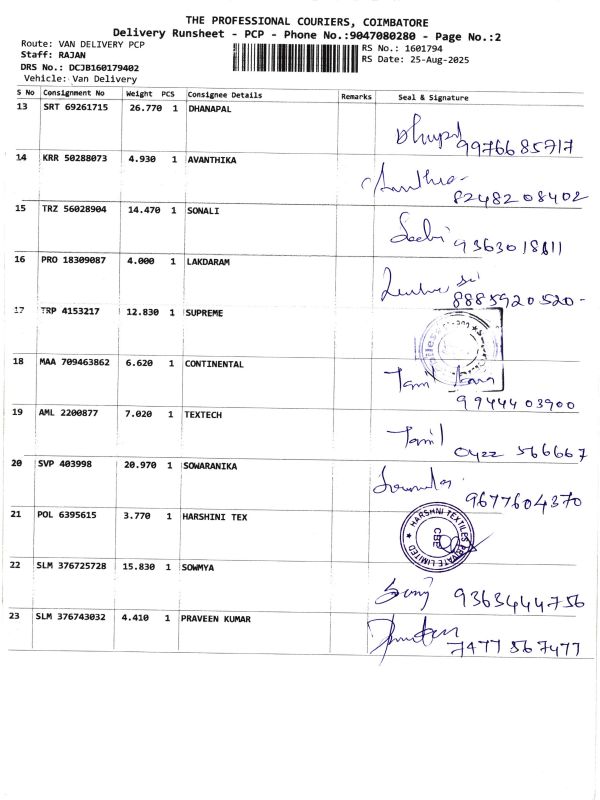 THE PROFESSIONAL COURIERS, COIMBATORE
Delivery Runsheet - PCP - Phone No.:9047080280 - Page No.:2
Route: VAN DELIVERY PCP
Staff: RAJAN
DRS No.: DCJB160179402
Vehicle: Van Delivery
RS No.: 1601794
RS Date: 25-Aug-2025
S No Consignment No Weight PCS Consignee Details Remarks Seal & Signature
13 SRT 69261715 26.770 1 DHANAPAL
9976685717
14 KRR 50288073 4.930 1 AVANTHIKA
8248208402
15 TRZ 56028904 14.470 1 SONALI
9363018611
16 PRO 18309087 4.000 1 LAKDARAM
8885920520-
17 TRP 4153217 12.830 1 SUPREME
18 MAA 709463862 6.620 1 CONTINENTAL
Tamil
9944403900
19 AML 2200877 7.020 1 TEXTECH
Tamil
0422 566667
20 SVP 403998 20.970 1 SOWARANIKA
9677604370
21 POL 6395615 3.770 1 HARSHINI TEX
HARSHNI TEXTILES PRIVATE LIMITED
CBE
22 SLM 376725728 15.830 1 SOWMYA
9363444756
23 SLM 376743032 4.410 1 PRAVEEN KUMAR
7477567477